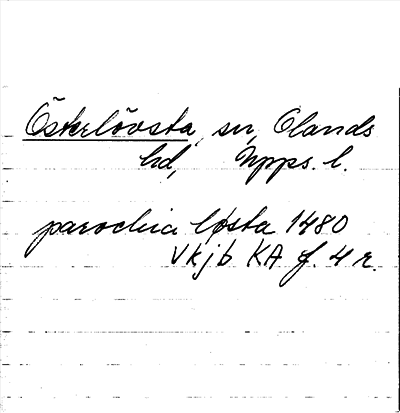 Öskelövsta, sn, Olands
hd, Upps. l.
parochia løsta 1480
Vkjb KA f. 4 r.